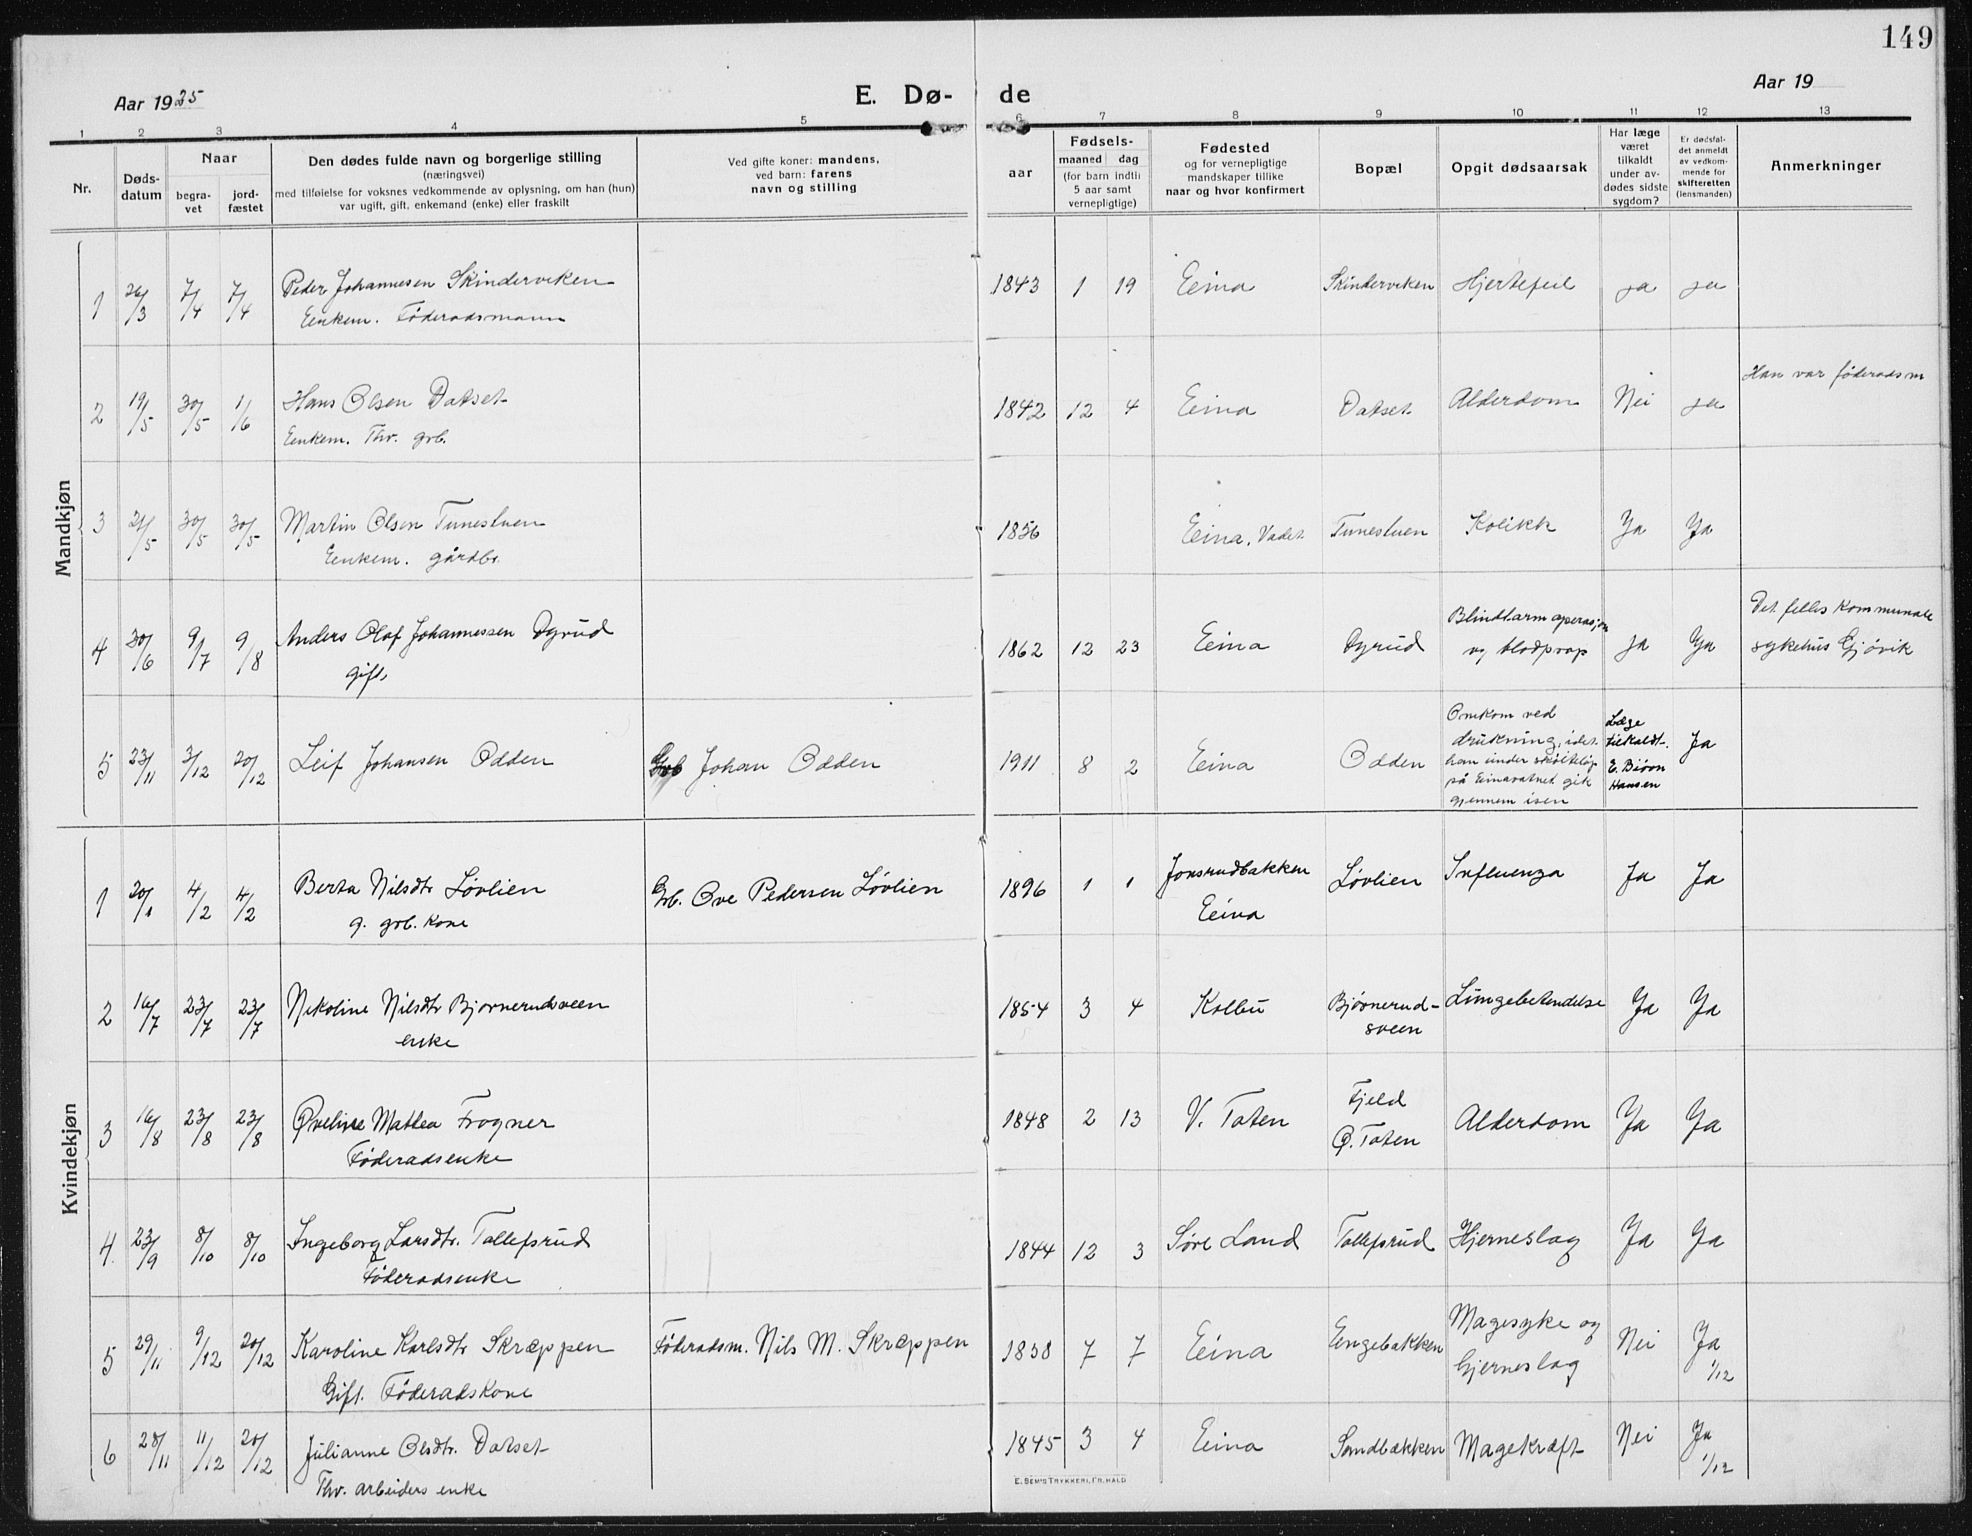 149
Aar 1925
E. Dø- de
Aar 19
1 2 3 4 5 6 7 8 9 10 11 12 13
Nr.
Døds-
datum
Naar
begra-
vet
jord-
fæstet
Den dødes fulde navn og borgerlige stilling
(næringsvei)
med tilføielse for voksnes vedkommende av oplysning, om han (hun)
var ugift, gift, enkemand (enke) eller fraskilt
Ved gifte koner: mandens,
ved barn: farens
navn og stilling
Fødsels-
aar
maaned dag
(for barn indtil
5 aar samt
vernepligtige)
Fødested
og for vernepligtige
mandskaper tillike
naar og hvor konfirmert
Bopæl
Opgit dødsaarsak
Har læge
været
tilkaldt
under av-
dødes sidste
sygdom?
Er dødsfal-
det anmeldt
av vedkom-
mende for
skifteretten
(lensmanden)
Anmerkninger
Mandkjøn
1 26/3 7/4 7/4 Peder Johannesen Skinderviken 1843 1 19 Eina Skinderviken Hjertefeil ja ja
Enkem. Føderadsmann
Han var føderadsm
2 19/5 30/5 1/6 Hans Olsen Datset 1842 12 4 Eina Datset Alderdom Nei ja
Enkem. Thv. grb.
3 21/5 30/5 30/5 Martin Olsen Tunestuen 1856 Eina, Vadet Tunestuen Kolikk Ja Ja
Enkem. gårdbr.
4 30/6 9/7 9/8 Anders Olaf Johannessen Dyrud 1862 12 23 Eina Dyrud Blindtarmoperasjon ja Ja Det felles kommunale
gift og blodprop sykehus Gjøvik
5 23/11 3/12 20/12 Leif Johansen Odden Grb Johan Odden 1911 8 2 Eina Odden Omkom ved
drukning, idet
han under skøiteløp
på Einavatnet gik
gjennem isen
Læge
tilkaldt.
E. Biörn
Hansen
Ja
Kvindekjøn
1 20/1 4/2 4/2 Berta Nilsdtr Løvlien Grb. Ove Pedersen Løvlien 1896 1 1 Jonsrudbakken Løvlien Influenza Ja Ja
g. grb. kone Eina
2 16/7 23/7 23/7 Nikoline Nilsdtr Bjørnerudsveen 1854 3 4 Kolbu Bjørnerud- Lungebetendelse Ja Ja
enke sveen
3 16/8 23/8 23/8 Øveline Mathea Frogner 1848 2 13 V. Toten Fjeld Alderdom Ja Ja
Føderadsenke Ø. Toten
4 23/9 8/10 8/10 Ingeborg Larsdtr. Tollefsrud 1844 12 3 Søre Land Tollefsrud Hjerneslag Ja Ja
Føderadsenke
5 29/11 9/12 20/12 Karoline Karlsdtr Skræppen Føderadsm. Nils M. Skræppen 1838 7 7 Eina Engebakken Magesyke og Nei Ja
Gift. Føderadskone hjerneslag 1/12
6 28/11 11/12 20/12 Julianne Olsdtr. Datset 1845 3 4 Eina Sandbakken Magekræft Nei Ja
Thv. arbeiders enke 1/12
E. SEM'S TRYKKERI, FR.HALD